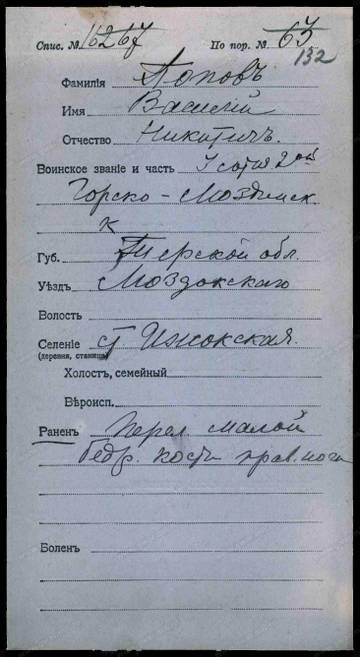 Спис. № 16267 По пор. № 63
132
Фамилія Поповъ
Имя Василій
Отчество Никитичъ.
Воинское званіе и часть 1 сотня 2ой
Горско-Моздокск.
к
Губ. Терской обл.
Уѣздъ Моздокскаго
Волость
Селеніе ст
(деревня, станица)
Холостъ, семейный
Вѣроисп.
Раненъ Перел малой
бедр. кости прав. ноги
Боленъ